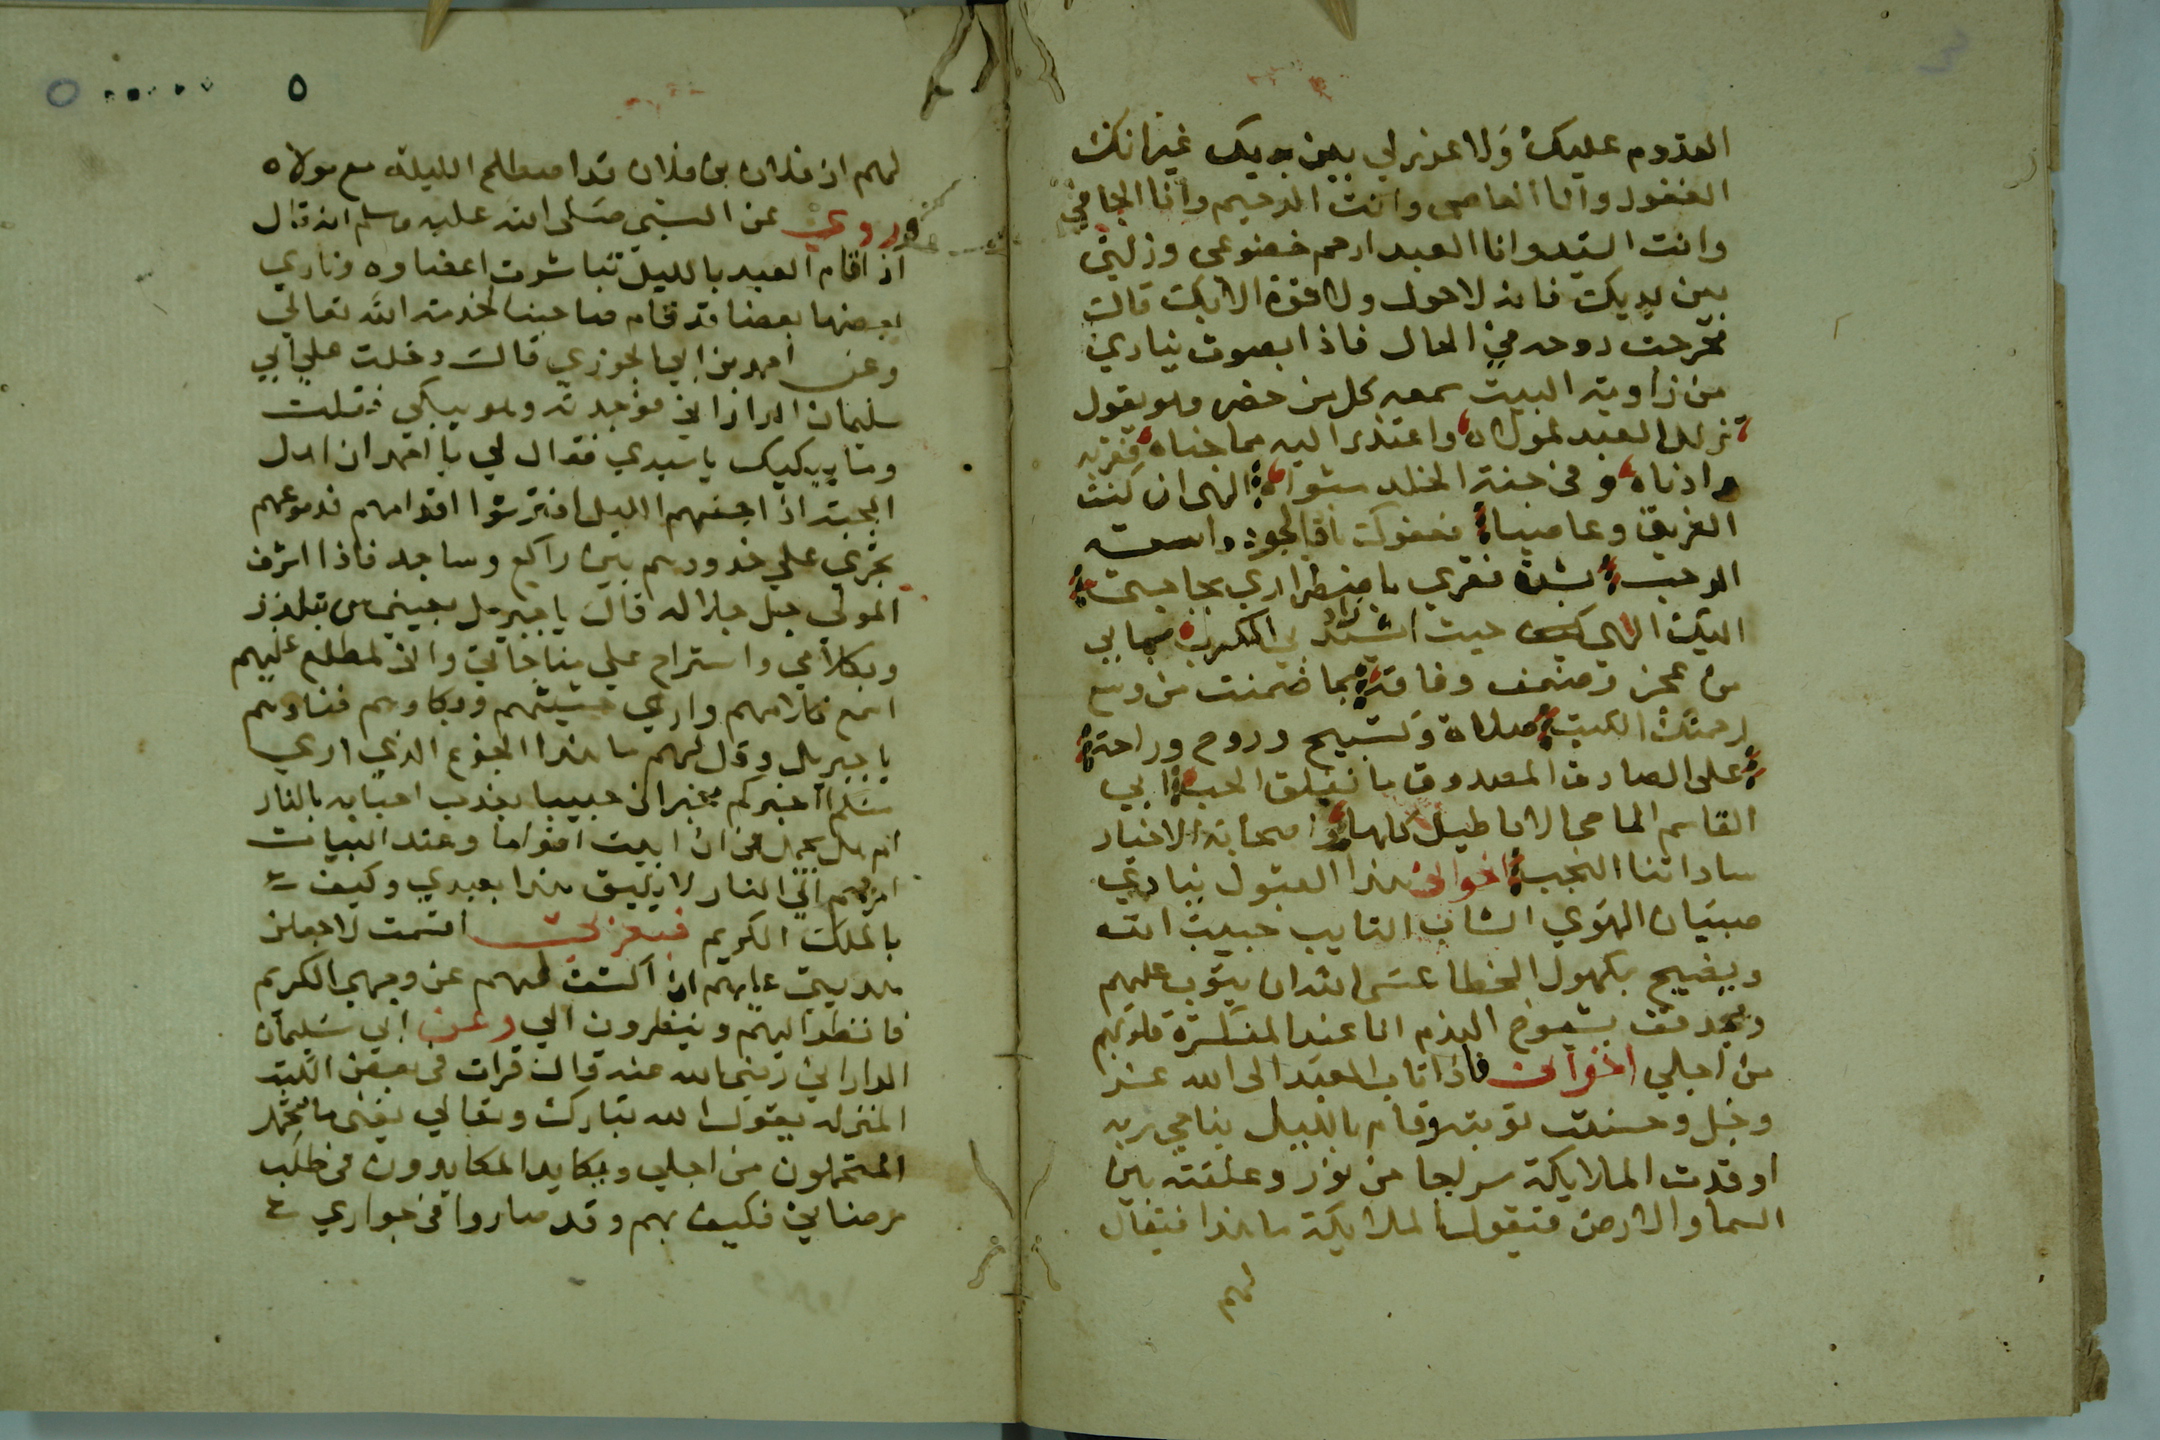 القدوم عليك ولا عذر لي بين يديك غير انك
الغفور وانا العاصي وانت الرحيم وانا الجافي
وانت السيد وانا العبد ارحم خضوعي وزلتي
بين يديك فانه لا حول ولا قوة الا بك قالت
فخرجت روحه في الحال فاذا بصوت ينادي
من زاوية البيت سمعه كل من حضر وهو يقول
تذلل العبد لمولاه واعتذر اليه مما جناه فقربه
وادناه وفي جنة الخلد مثواه الهي ان كنت
الغريق وعاصيا فعفوك يا الجود واسعة
الرحب بشدة فقري باضطراري بحاجتي
اليك الهي حيث اشتد بي الكرب بما بي
من عجز وضعف وفاقة بما ضمنت من وسع
رحمتك الكتب صلاة وتسبيح وروح وراحة
على الصادق المصدوق ما نفلق الحب ابي
القاسم الماحي الاباطيل كلها واصحابه الاخيار
ساداتنا النجب اخواني هذا القبول ينادي
صبيان الهوي الشاب التايب حبيب الله
ويصيح بكهول الخطا عسى الله ان يتوب عليهم
ويحدقف بشيوخ الندم انا عند المنكسرة قلوبهم
من اجلي اخواني فاذا تاب العبد الى الله عز
وجل وحسنت توبته وقام بالليل يناجي ربه
اوقدت الملايكة سراجا من نور وعلقته بين
السما والارض فتقول الملايكة ما هذا فيقال
لهم
٥
لهم ان فلان بن فلان قد اصطلح الليلة مع مولاه
وروي عن النبي صلى الله عليه وسلم انه قال
اذا قام العبد بالليل تباشرت اعضاوه ونادي
بعضها بعضا قد قام صاحبنا لخدمة الله تعالي
وعن احمد بن ابي الجوزي قال دخلت علي ابي
سليمان الداراني فوجدته وهو يبكي فقلت
وما يبكيك يا سيدي فقال لي يا احمد ان اهل
المحبة اذا جنهم الليل افترشوا اقدامهم فدموعهم
تجري علي خدودهم بين راكع وساجد فاذا اشرف
المولي جل جلاله قال يا جبريل بعيني من تلذذ
وبكلامي واستراح علي مناجاتي واني لمطلع عليهم
اسمع كلامهم واري خشيتهم وبكاوهم فنادهم
يا جبريل وقل لهم ما هذا الجزع الذي اري
منكم اخبركم مخبر ان حبيبا يعذب احبابه بالنار
ام هل يجمل بي ان ابيت اقواما وعند البيات
امر بهم الي النار لا يليق هذا بعبدي وكيف
بالملك الكريم فبعزتي اقسمت لاجعلن
هديتي عليهم ان اكشف لهم عن وجهي الكريم
فانظر اليهم وينظرون الي وعن ابي سليمان
الداراني رضي الله عنه قال قرات في بعض الكتب
المنزله يقول الله تبارك وتعالي بعيني ما يتحمل
المتحملون من اجلي وبكابد المكابدون في طلب
مرضاتي فكيف بهم وقد صاروا في جواري